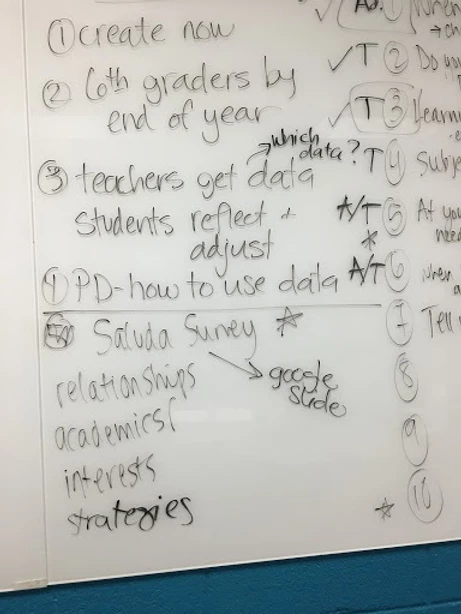 ① create now
② 6th graders by
end of year
which
data?
③ teachers get data
students reflect +
adjust
④ PD-how to use data
Saluda Survey ☆
google
slide
relationships
academics
interests
strategies
✓ ① When
✓ T ② Do you
✓ T ③
T ④
A/T ⑤ At you
need
☆
A/T ⑥ When
⑦ Tell
⑧
⑨
☆ ⑩